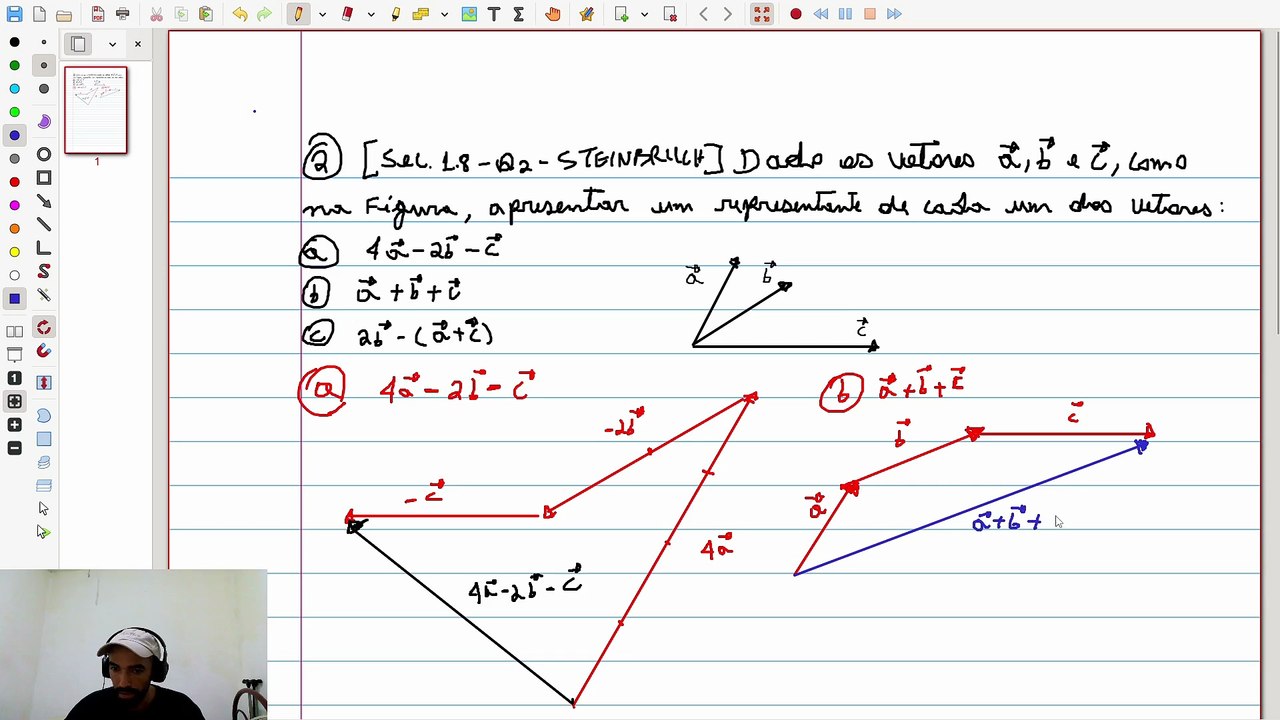 ② [Sec. 1.8 - Q2 - STEINBRUCH] Dado os vetores a⃗, b⃗ e c⃗, como
na Figura, apresentar um representante de cada um dos vetores:
ⓐ 4a⃗ - 2b⃗ - c⃗
ⓑ a⃗ + b⃗ + c⃗
ⓒ 2b⃗ - (a⃗ + c⃗)
a⃗ b⃗ c⃗
ⓐ 4a⃗ - 2b⃗ - c⃗
-2b⃗
-c⃗
4a⃗
4a⃗ - 2b⃗ - c⃗
ⓑ a⃗ + b⃗ + c⃗
b⃗ c⃗
a⃗
a⃗ + b⃗ +
1